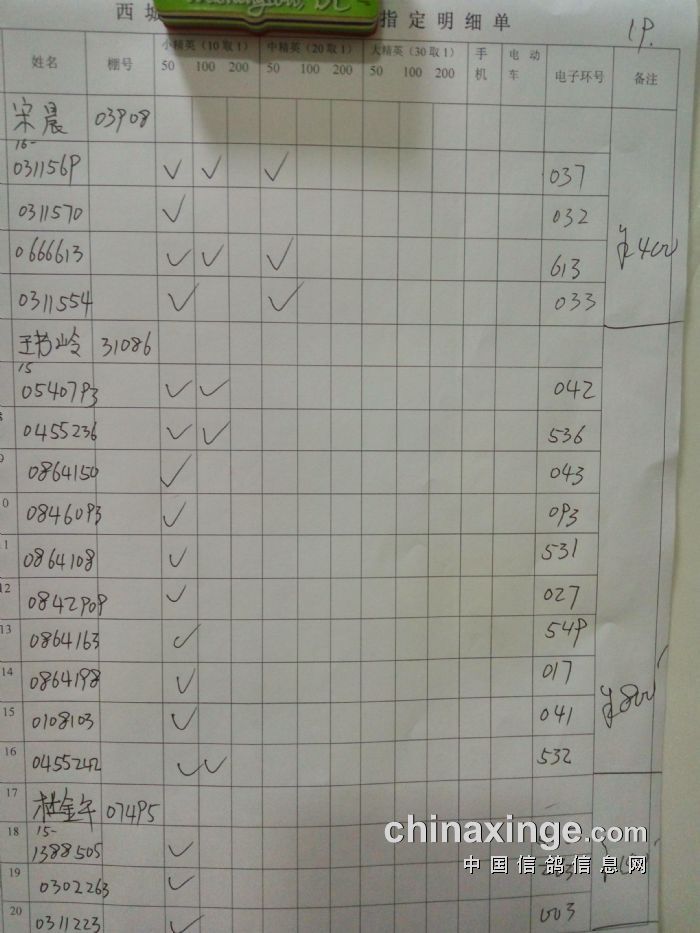 西城 指定明细单
1P.
姓名 棚号 小精英(10取1) 50 100 200 中精英(20取1) 50 100 200 大精英(30取1) 50 100 200 手机 电动车 电子环号 备注
宋晨 03908
16-
0311569 ✓ ✓ ✓ 037
0311570 ✓ 032
0666613 ✓ ✓ ✓ 613
¥400
0311554 ✓ ✓ 033
31086
15
0540793 ✓ ✓ 042
0455236 ✓ ✓ 536
0864150 ✓ 043
0846093 ✓ 093
0864108 ✓ 531
12 0842909 ✓ 027
13 0864163 ✓ 549
14 0864198 ✓ 017
¥800
15 0108103 ✓ 041
16 0455242 ✓ ✓ 532
17 杜金午 07495
15-
18 1388505 ✓
19 0302263 ✓
20 0311223 ✓ 003
chinaxinge.com
中国信鸽信息网